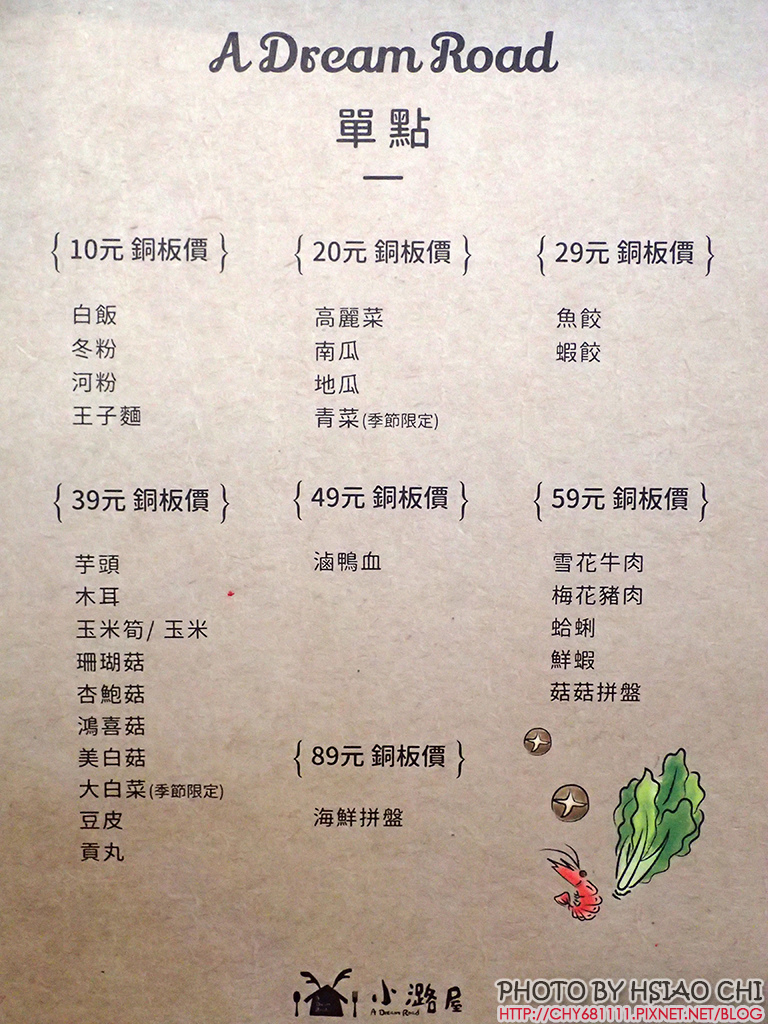 A Dream Road
單點
{ 10元 銅板價 }
白飯
冬粉
河粉
王子麵
{ 20元 銅板價 }
高麗菜
南瓜
地瓜
青菜(季節限定)
{ 29元 銅板價 }
魚餃
蝦餃
{ 39元 銅板價 }
芋頭
木耳
玉米筍/ 玉米
珊瑚菇
杏鮑菇
鴻喜菇
美白菇
大白菜(季節限定)
豆皮
貢丸
{ 49元 銅板價 }
滷鴨血
{ 59元 銅板價 }
雪花牛肉
梅花豬肉
蛤蜊
鮮蝦
菇菇拼盤
{ 89元 銅板價 }
海鮮拼盤
小潞屋
A Dream Road
PHOTO BY HSIAO CHI
HTTP://CHY681111.PIXNET.NET/BLOG